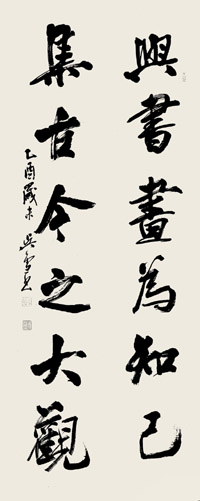 與書畫為知己
集古今之大觀
乙酉歲末